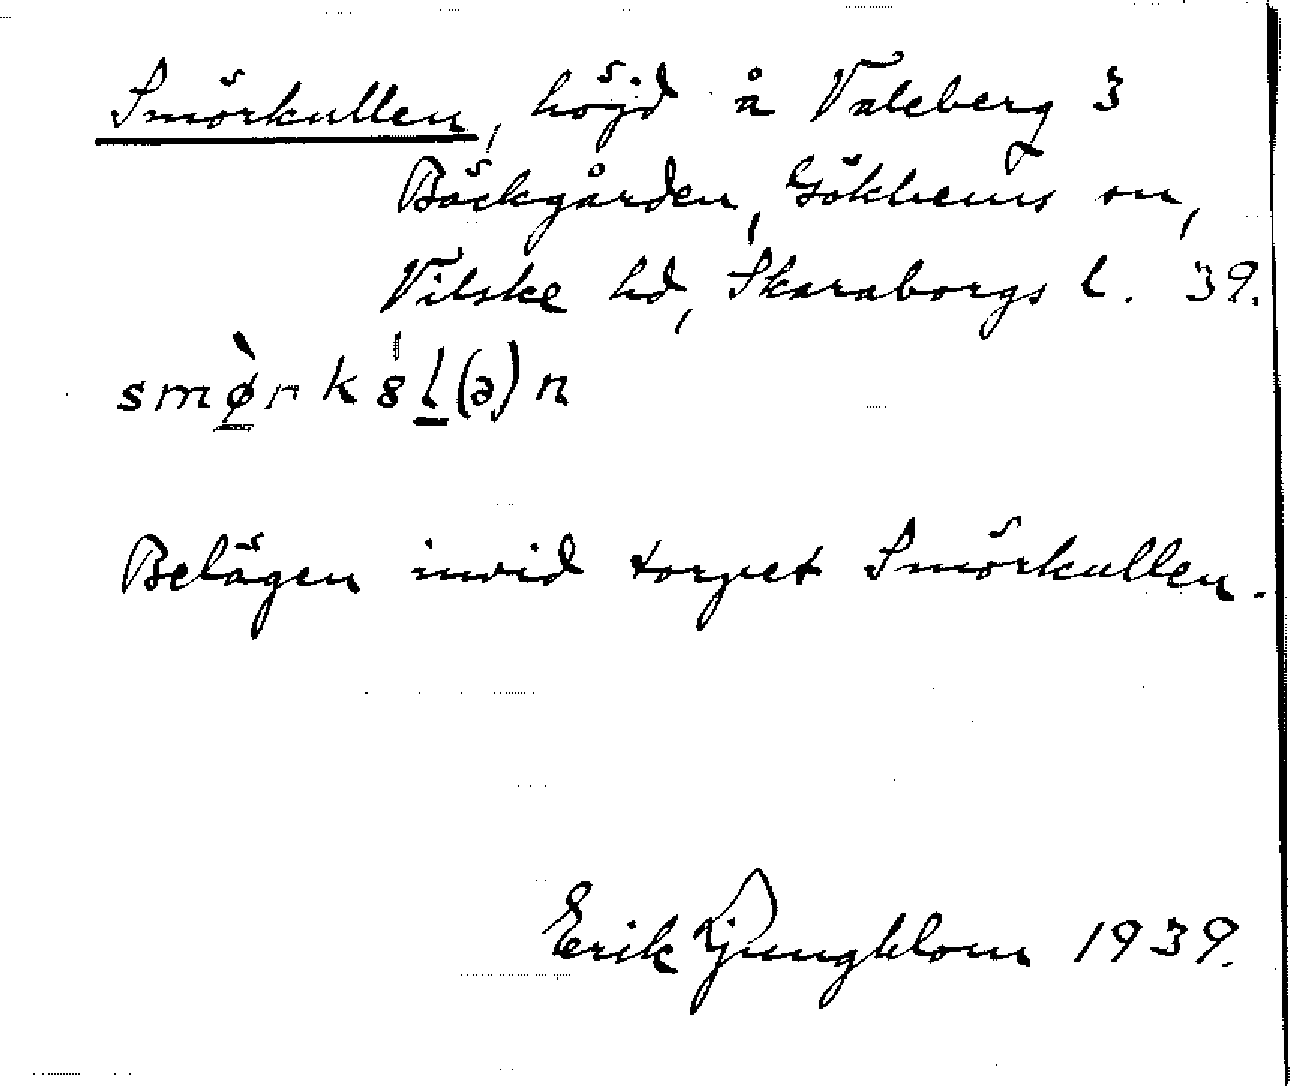 Smörkullen, höjd å Valeberg 3
Bäckgården, Gökhems sn,
Vilske hd, Skaraborgs l. 39.
smø̀rk8l(ə)n
Belägen invid torpet Smörkullen.
Erik Ljungblom 1939.